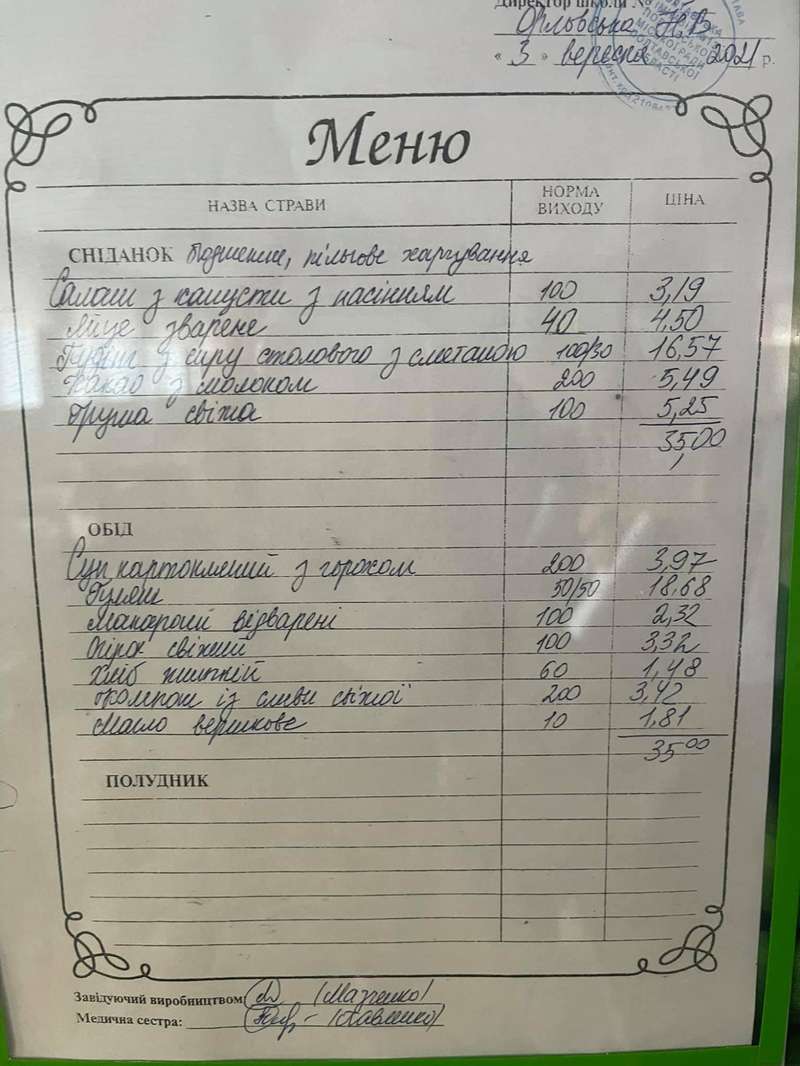 Директор школи №
Орловська Н.В
« 3 » вересня 2021 р.
Меню
НАЗВА СТРАВИ НОРМА ВИХОДУ ЦІНА
СНІДАНОК пільгове харчування
Салат з капусти з насінням 100 3,19
Яйце зварене 40 4,50
Пудинг з сиру столового з сметаною 100/30 16,57
Какао з молоком 200 5,49
Груша свіжа 100 5,25
35,00
ОБІД
Суп картопляний з горохом 200 3,97
Гуляш 50/50 18,68
Макарони відварені 100 2,32
Огірок свіжий 100 3,32
Хліб пшеній 60 1,48
Компот із сливи свіжої 200 3,42
Масло вершкове 10 1,81
35 00
ПОЛУДНИК
Завідуючий виробництвом /Мазненко/
Медична сестра: /Павленко/